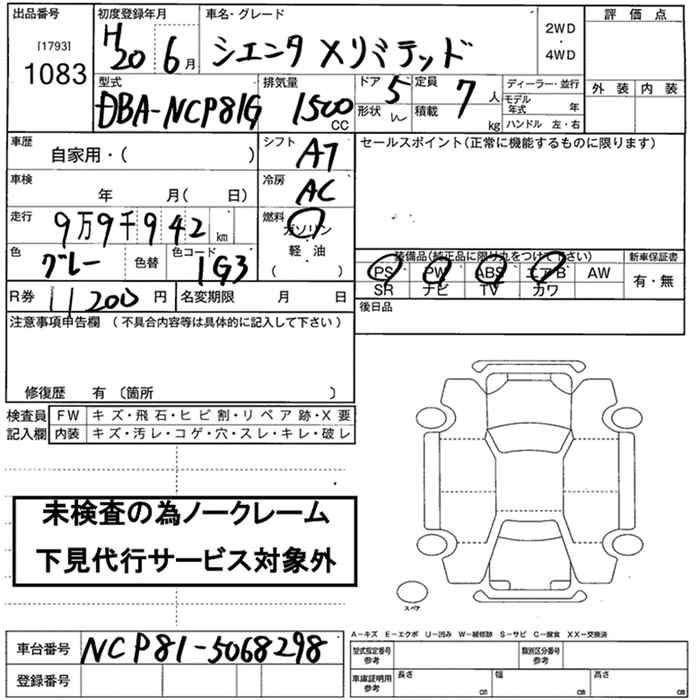 出品番号 初度登録年月 車名・グレード 評価点
[1793] H20 6月 シエンタ Xリミテッド 2WD・4WD
1083 外装 内装
型式 排気量 ドア 5 定員 7人 ディーラー・並行
DBA-NCP81G 1500CC 形状 積載 kg モデル年式 年
ハンドル 左・右
車歴 自家用・( ) シフト AT セールスポイント(正常に機能するものに限ります)
車検 年 月( 日) 冷房 AC
走行 9万9千942km 燃料 ガソリン
色 グレー 色替 色コード 1G3 軽・油
( ) 装備品(純正品に限り丸をつけて下さい) 新車保証書
PS PW ABS エアB AW 有・無
SR ナビ TV カワ
R券 11200円 名変期限 月 日 後日品
注意事項申告欄(不具合内容等は具体的に記入して下さい)
修復歴 有〔箇所 〕
検査員 FW キズ・飛石・ヒビ割・リペア跡・X要
記入欄 内装 キズ・汚レ・コゲ・穴・スレ・キレ・破レ
未検査の為ノークレーム
下見代行サービス対象外
スペア
A−キズ E−エクボ U−凹み W−補修跡 S−サビ C−腐食 XX−交換済
車台番号 NCP81-5068298 型式指定番号 参考 類別区分番号 参考
登録番号 車庫証明用 参考 長さ cm 幅 cm 高さ cm